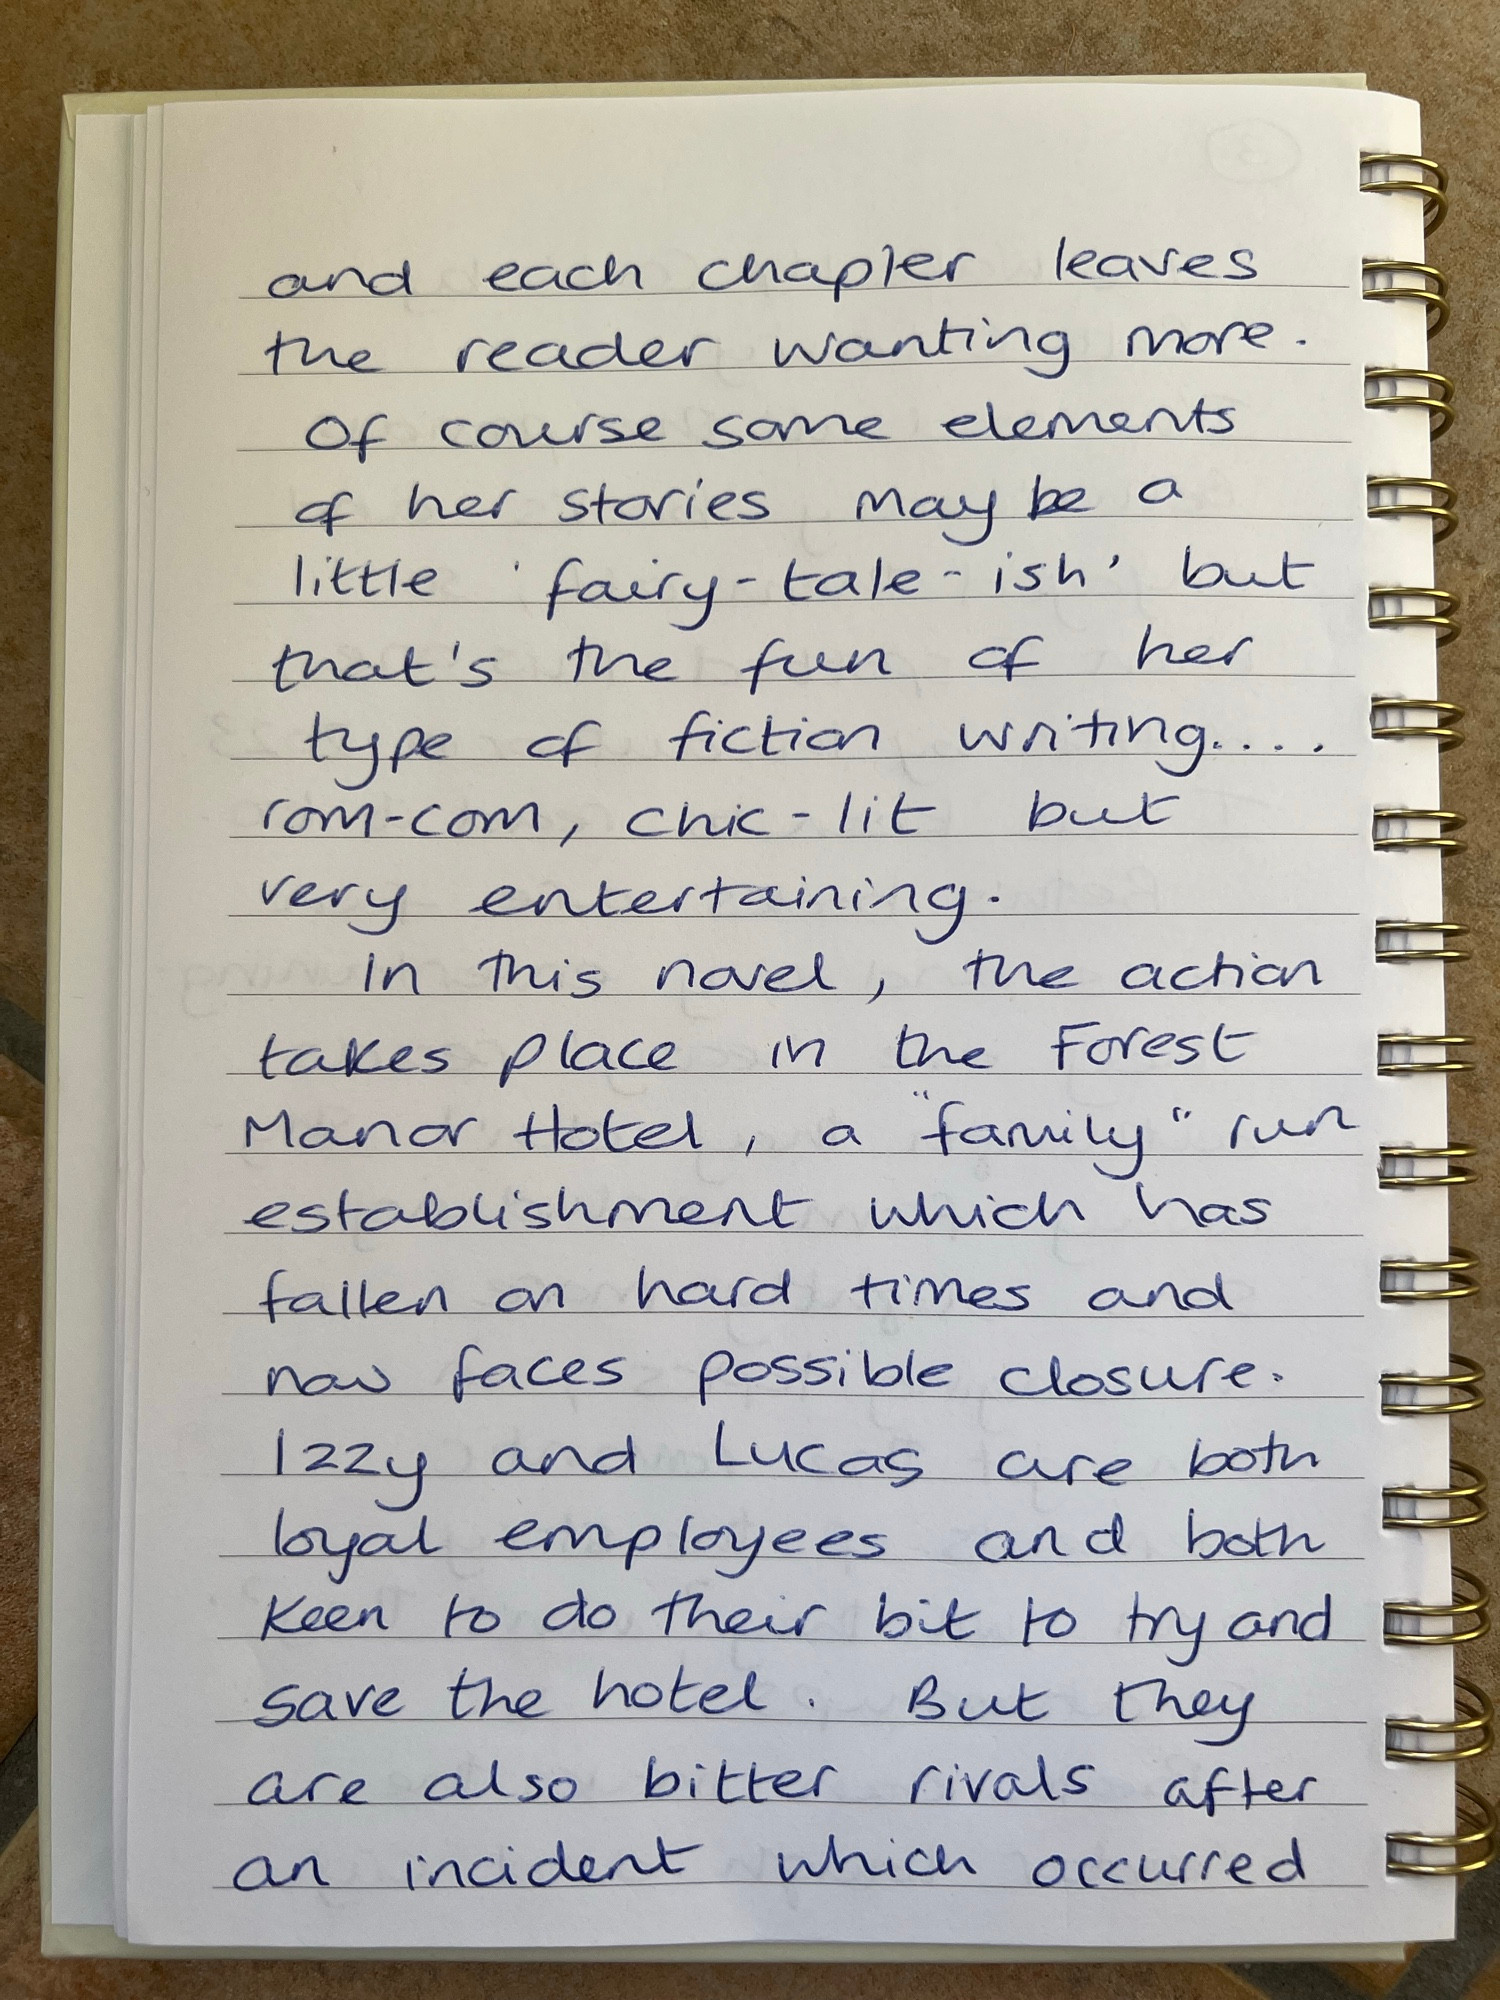 and each chapter leaves
the reader wanting more.
Of course some elements
of her stories may be a
little 'fairy-tale-ish' but
that's the fun of her
type of fiction writing....
rom-com, chic-lit but
very entertaining.
In this novel, the action
takes place in the Forest
Manor Hotel, a "family" run
establishment which has
fallen on hard times and
now faces possible closure.
Izzy and Lucas are both
loyal employees and both
keen to do their bit to try and
save the hotel. But they
are also bitter rivals after
an incident which occurred